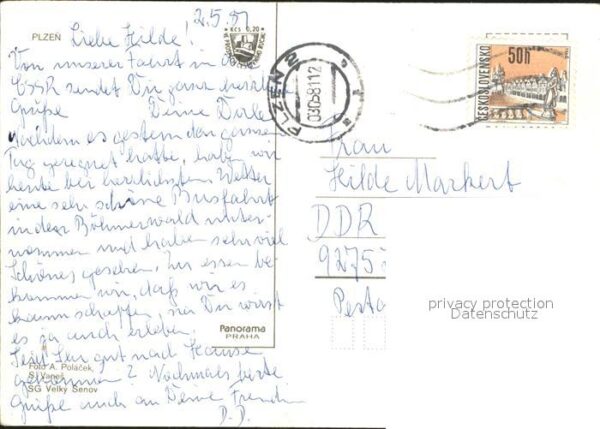 2.5.81
PLZEŇ Liebe Hilde!
KČS 0,20
Von unserer Fahrt in die
ČSSR sendet Dir ganz herzliche
Grüße Deine Dorle
Nachdem es gestern den ganzen
Tag geregnet hatte, haben wir
heute bei herrlichstem Wetter
eine sehr schöne Busfahrt
in den Böhmerwald unter-
nommen und haben sehr viel
Schönes gesehen. Zu essen be-
kommen wir, daß wir es
kaum schaffen, na Du wirst
es ja auch erleben.
gut nach Hause
gekommen? Nochmals herzl.
Grüße auch an Deine Freundin
D.D.
Foto A. Poláček,
S. Vaneš
SG Velký Šenov
Panorama
PRAHA
PLZEŇ 2
030581 12
50h
ČESKOSLOVENSKO
Frau
Hilde Markert
DDR
9275
privacy protection
Datenschutz